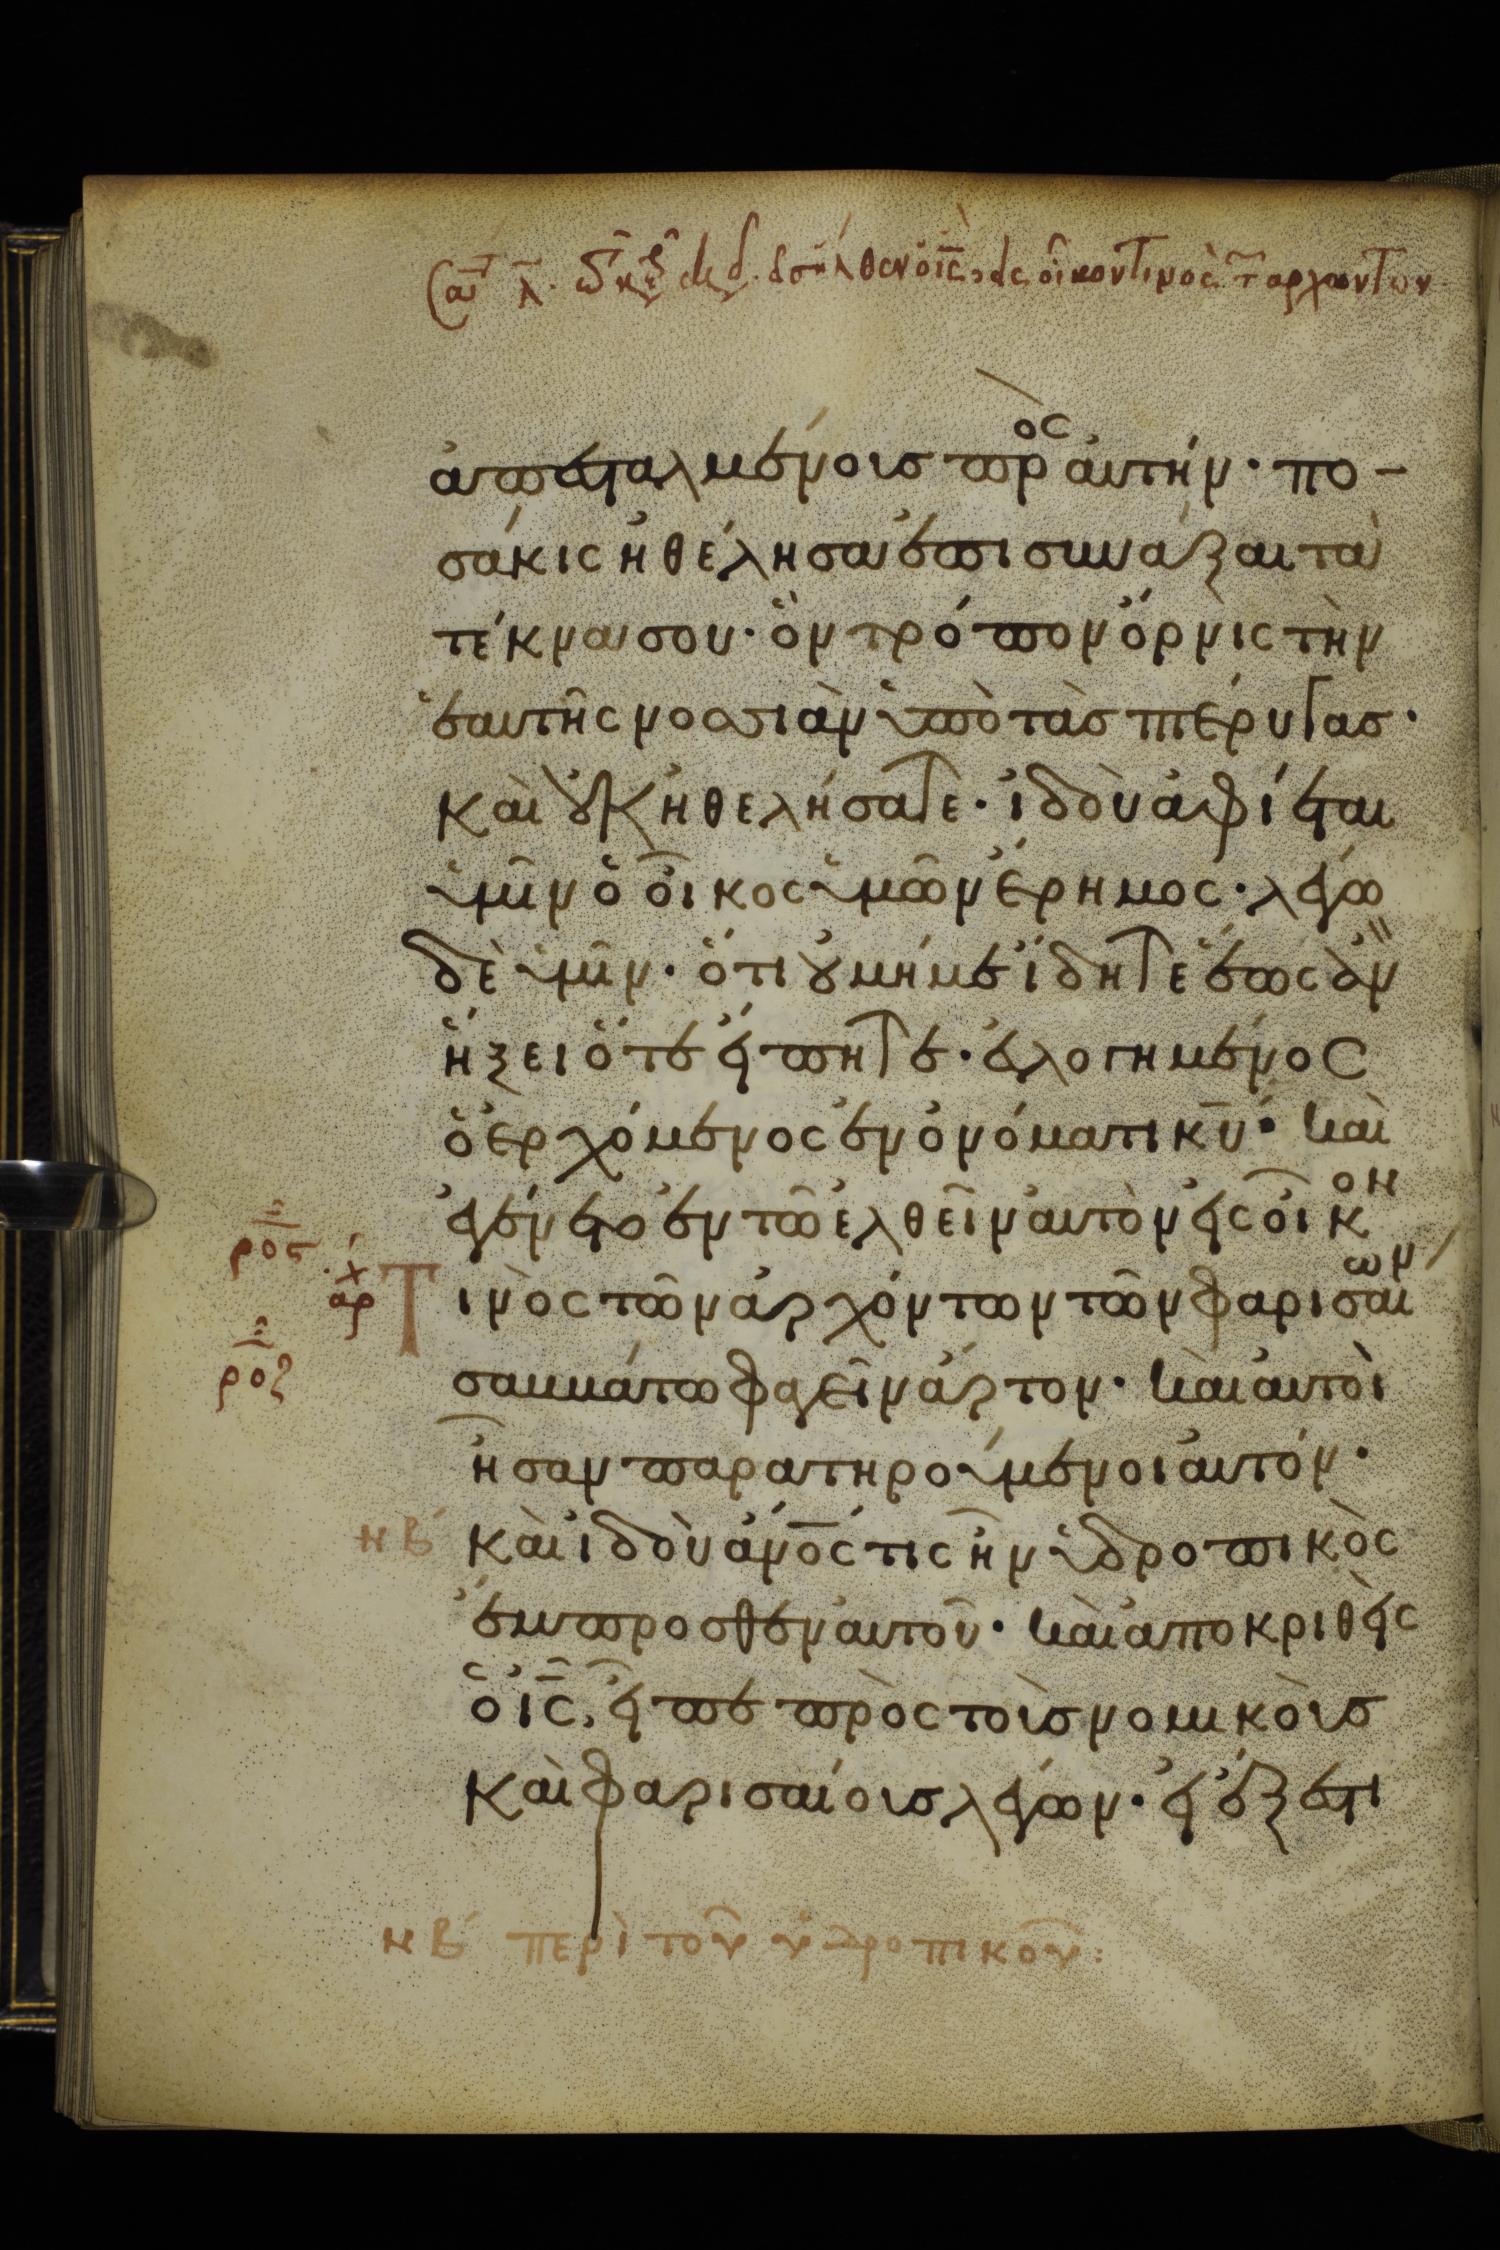 εἰσῆλθεν ὁ ις εἰς οἶκον τινὸς τ αρχοντων
ἀπεσταλμένους πρ ος αὐτήν· πο-
σάκις ἠθέλησα ἐπισυνάξαι τὰ
τέκνα σου· ὃν τρόπον ὄρνις τὴν
ἑαυτῆς νοσσιὰν ὑπὸ τὰς πτέρυγας·
καὶ οὐκ ἠθελήσατε· ἰδοὺ ἀφίεται
ὑμῖν ὁ οἶκος ὑμῶν ἔρημος· λέγω
δὲ ὑμῖν· ὅτι οὐ μή με ἴδητε ἕως ἂν
ἥξει ὅτε εἴπητε· εὐλογημένος
ὁ ἐρχόμενος ἐν ὀνόματι κυ· καὶ
ἐγένετο ἐν τῶ ἐλθεῖν αὐτὸν εἰς οἶκον
ρος
χ
αρ
Τινὸς τῶν ἀρχόντων τῶν φαρισαίων
ροζ
σαββάτω φαγεῖν ἄρτον· καὶ αὐτοὶ
ἦσαν παρατηρούμενοι αὐτόν·
ΝΒ καὶ ἰδοὺ ἀνος τις ἦν ὑδροπικὸς
ἔμπροσθεν αὐτοῦ· καὶ ἀποκριθεὶς
ὁ ις, εἶπε πρὸς τοὺς νομικοὺς
καὶ φαρισαίους λέγων· εἰ ἔξεστι
ΝΒ περὶ τοῦ ὑδροπικοῦ: